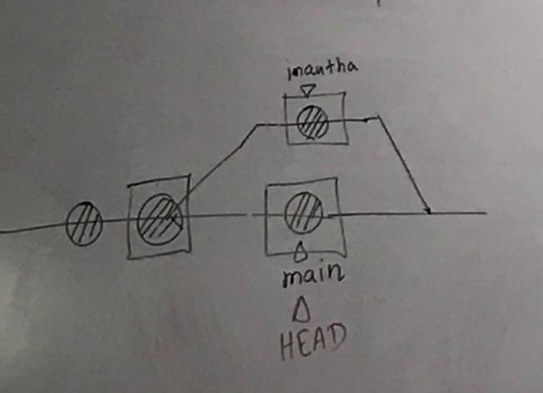 imantha
main
HEAD